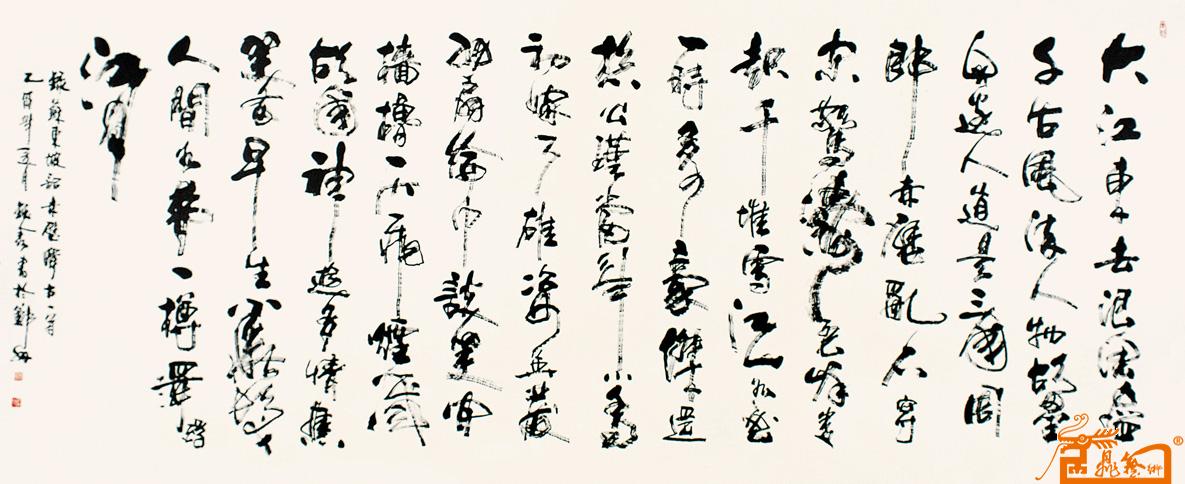 大江東去浪淘盡
千古風流人物故壘
西邊人道是三國周
郎赤壁亂石穿
空驚濤拍岸卷
起千堆雪江山如畫
一時多少豪傑遙
想公瑾當年小喬
初嫁了雄姿英發
羽扇綸巾談笑間
檣櫓灰飛煙滅
故國神遊多情應
笑我早生華髮
人間如夢一樽還酹
江月
錄蘇東坡詞赤壁懷古一首
乙酉年五月書於鄭州